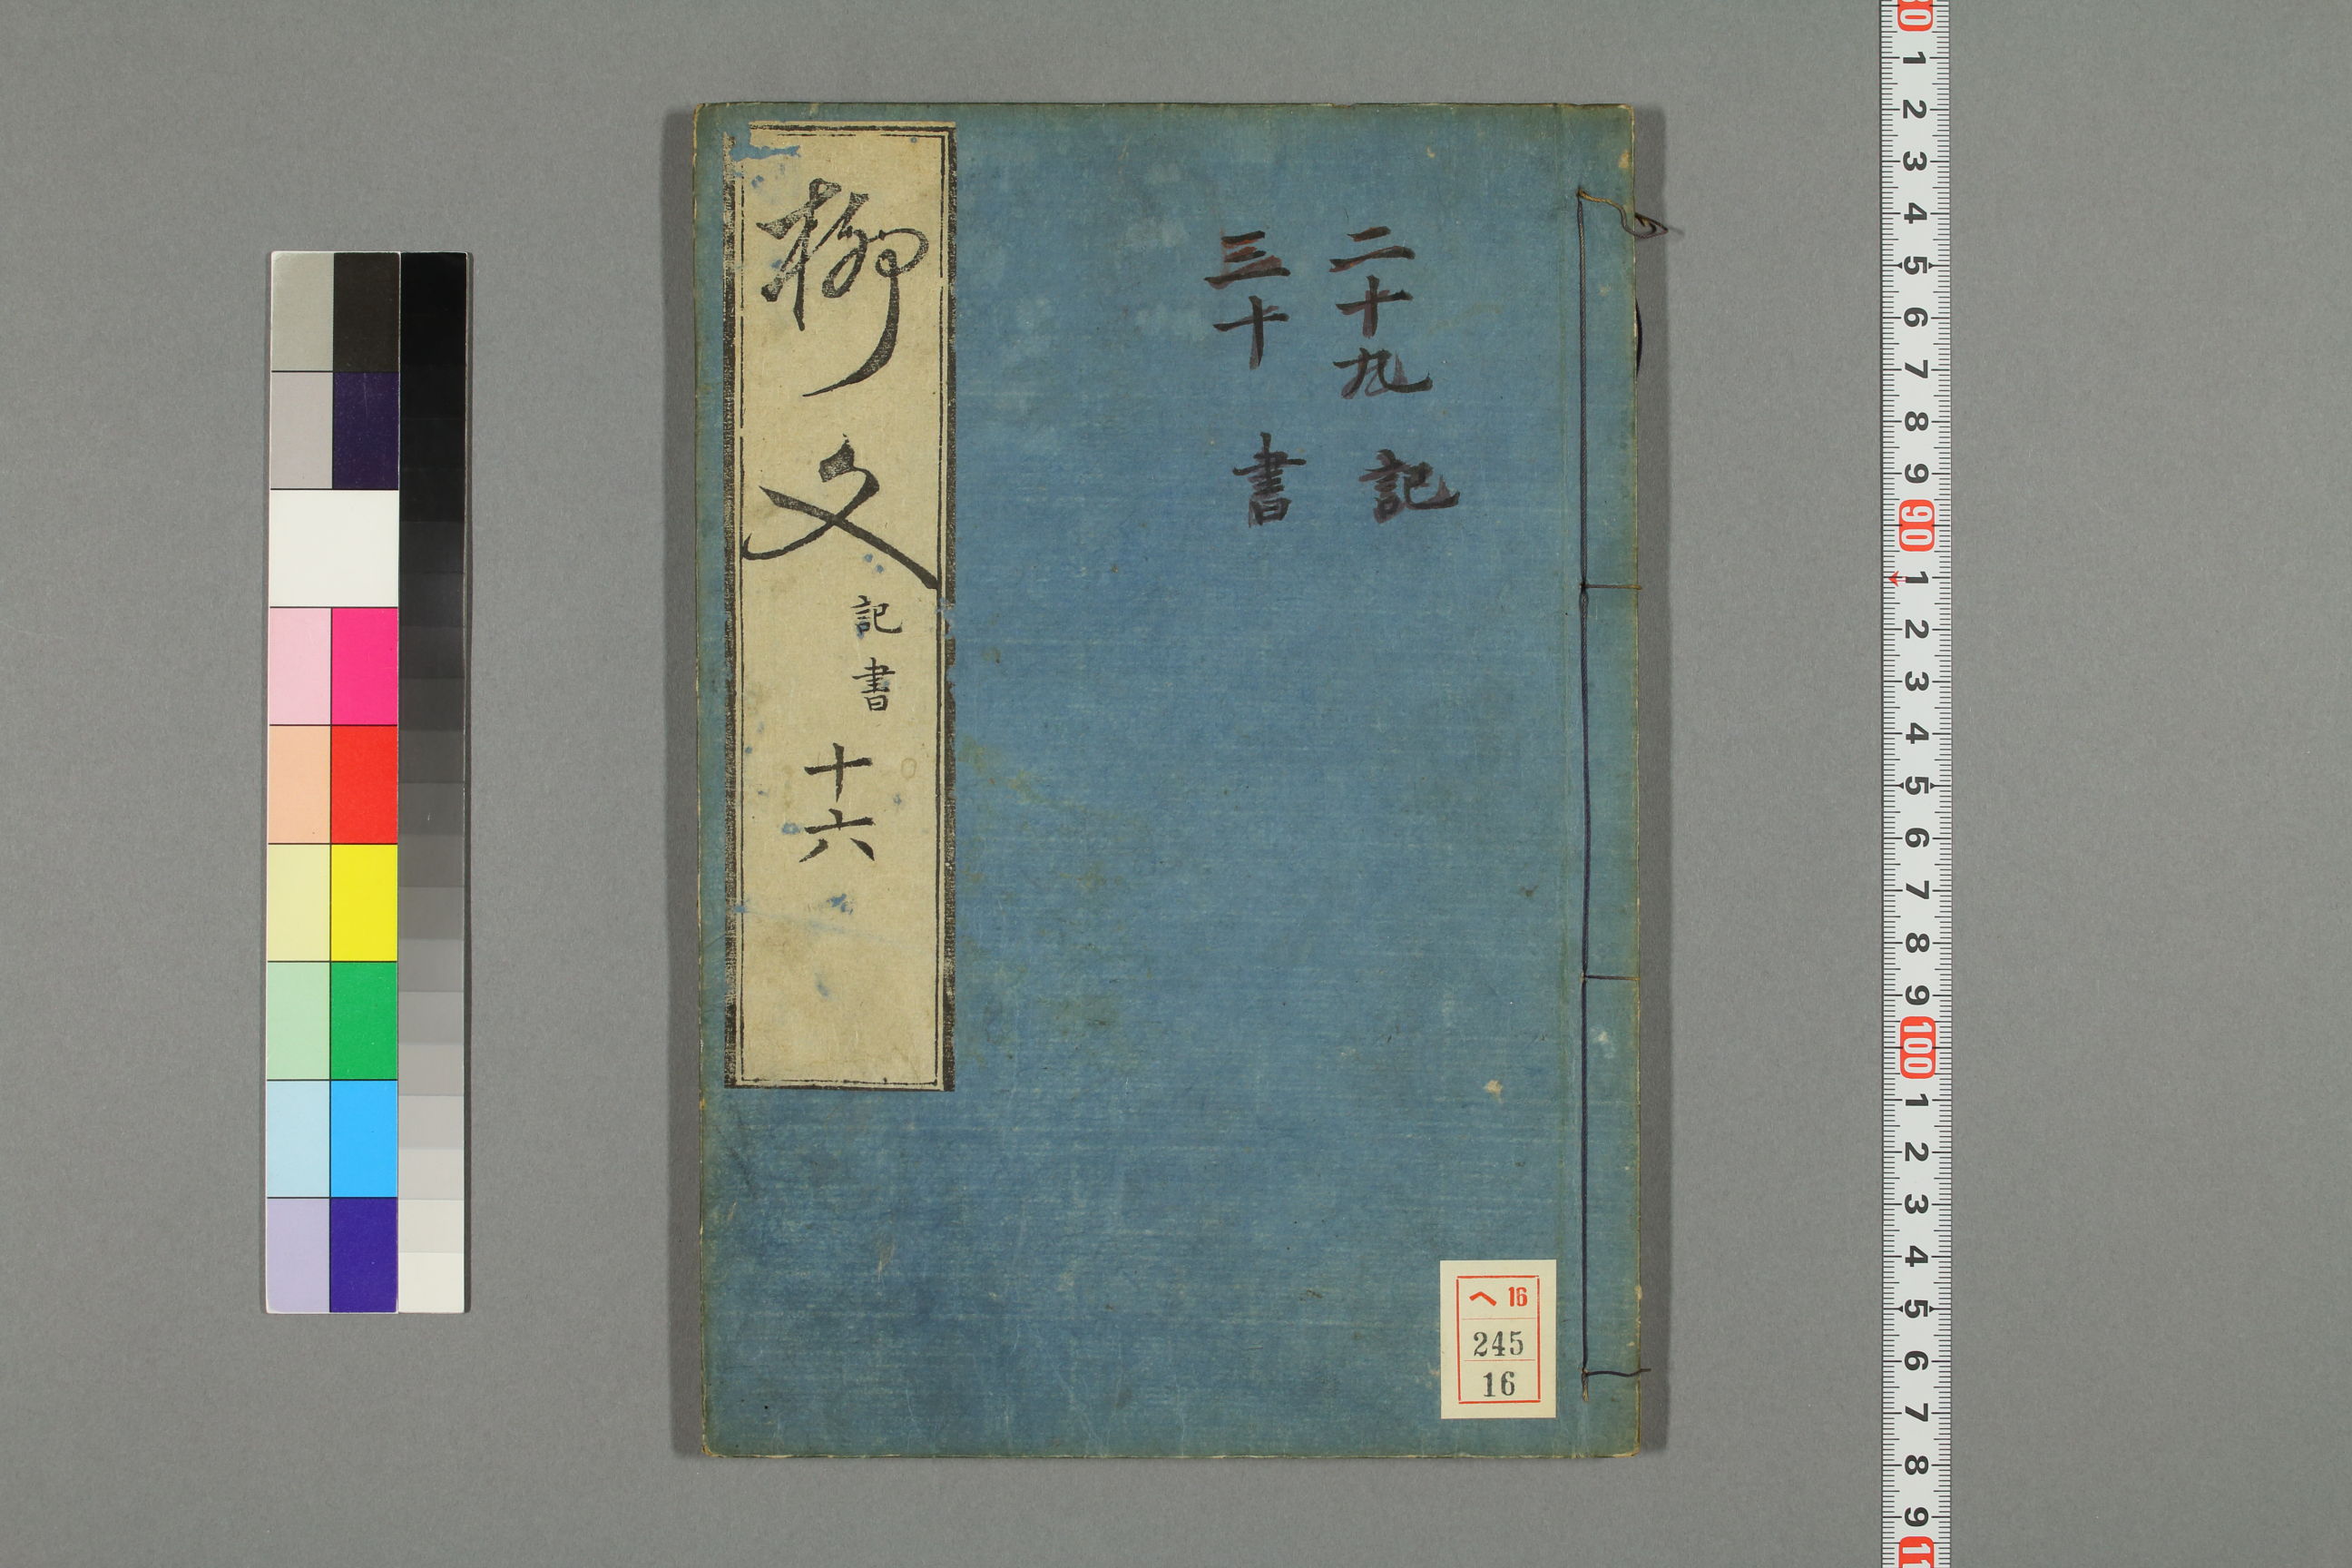 二十九 記
三十 書
柳文 記書 十六
ヘ 16
245
16
80
1
2
3
4
5
6
7
8
9
90
1
2
3
4
5
6
7
8
9
100
1
2
3
4
5
6
7
8
9